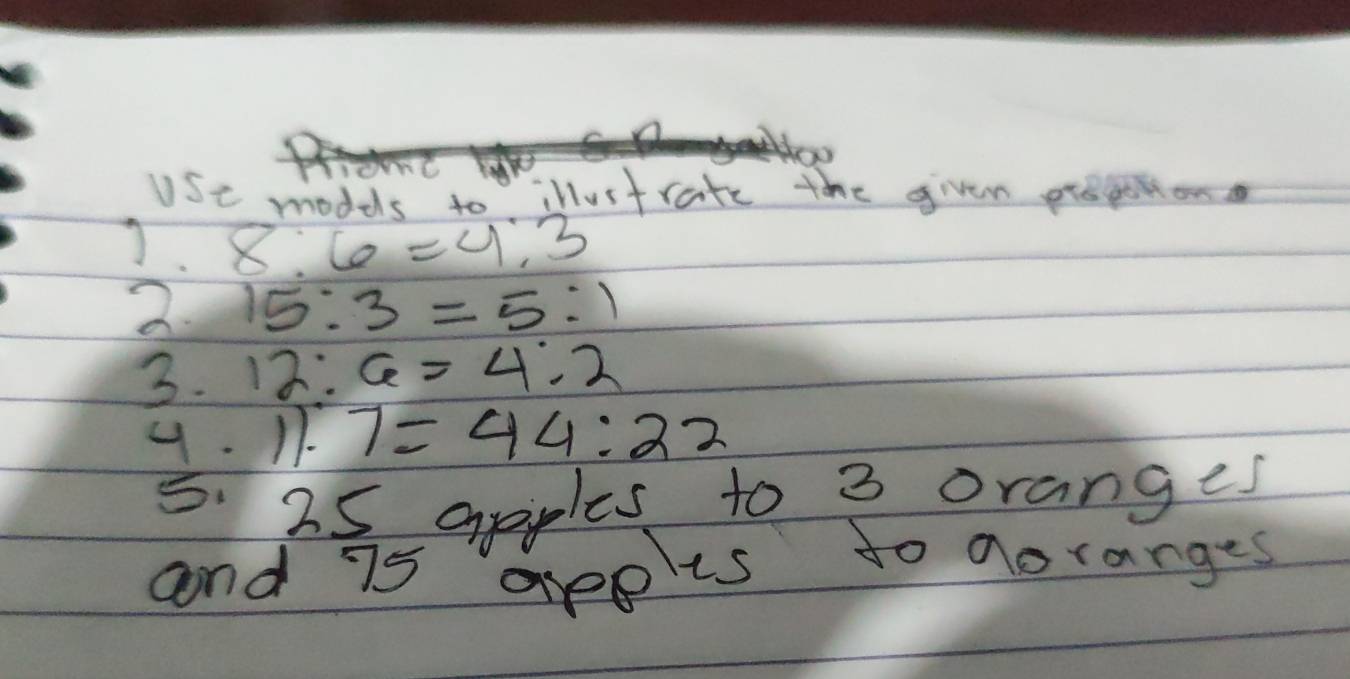 Use models to illustrate the given proportion.
1. 8:6 = 4:3
2. 15:3 = 5:1
3. 12:6 = 4:2
4. 11:7 = 44:22
5. 25 apples to 3 oranges
and 75 apples to 9 oranges